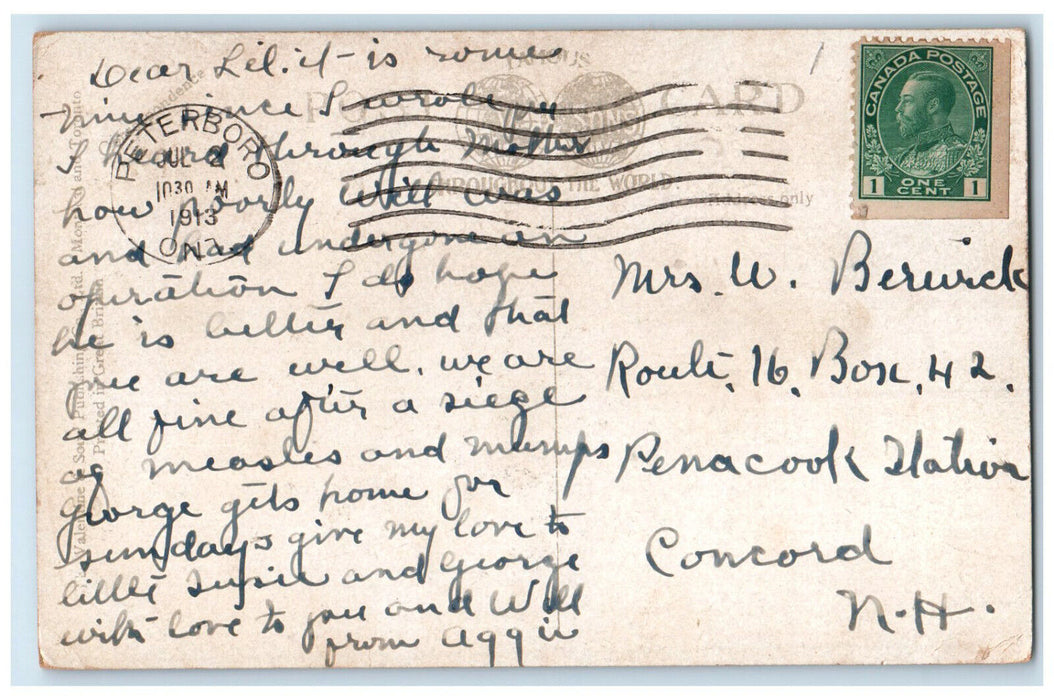 Dear Lil. it is some
time since I wrote
I heard through Mother
how poorly Will was
and had undergone an
opiration I do hope
he is better and that
you are well, we are
all fine after a siege
of measles and mumps
George gets home for
sundays give my love to
little Susie and George
with love to you and Will
from Aggie
POST CARD
FAMOUS
THROUGHOUT THE WORLD.
Address only
PETERBORO
JUL 2
1030 AM
1913
ONT.
CANADA POSTAGE
1 ONE CENT 1
Mrs. W. Berwick
Route, 16, Box, 42.
Penacook Station
Concord
N.H.
Valentine & Sons Publishing Co. Ltd. Montreal and Toronto
Printed in Great Britain